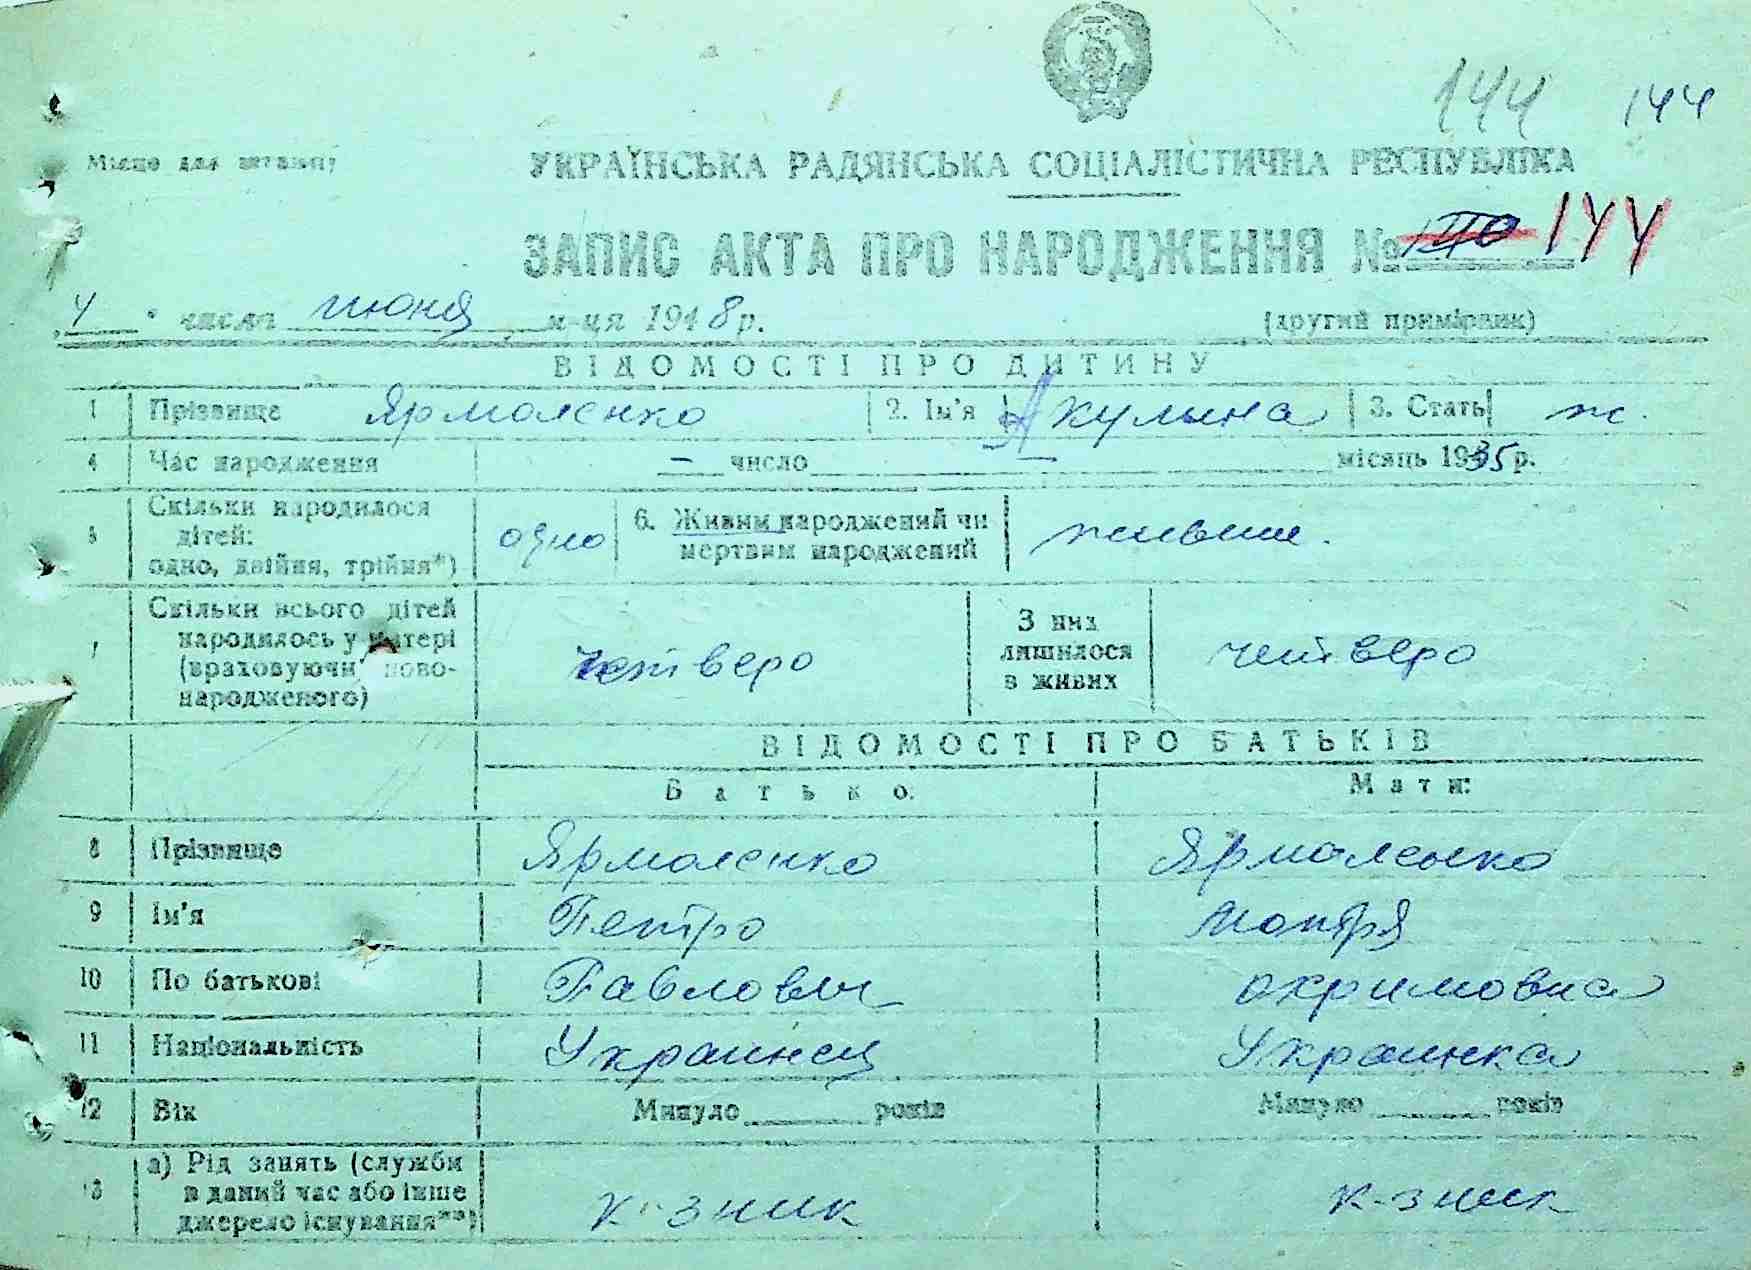 144 144
Місце для штампу
УКРАЇНСЬКА РАДЯНСЬКА СОЦІАЛІСТИЧНА РЕСПУБЛІКА
ЗАПИС АКТА ПРО НАРОДЖЕННЯ № 144
"4" числа июня м-ця 1948 р. (другий примірник)
ВІДОМОСТІ ПРО ДИТИНУ
1 Прізвище Ярмоленко 2. Ім'я Акулына 3. Стать ж.
4 Час народження — число місяць 1935 р.
5 Скільки народилося дітей: одно, двійня, трійня*) одно 6. Живим народжений чи мертвим народжений живым.
7 Скільки всього дітей народилось у матері (враховуючи новонародженого) четверо З них лишилося в живих четверо
ВІДОМОСТІ ПРО БАТЬКІВ
Батько: Мати:
8 Прізвище Ярмоленко Ярмоленко
9 Ім'я Петро Мотря
10 По батькові Павловыч охримовна
11 Національність Украинец Украинка
12 Вік Минуло років Минуло років
13 а) Рід занять (служби в даний час або інше джерело існування**) к-зник к-зник